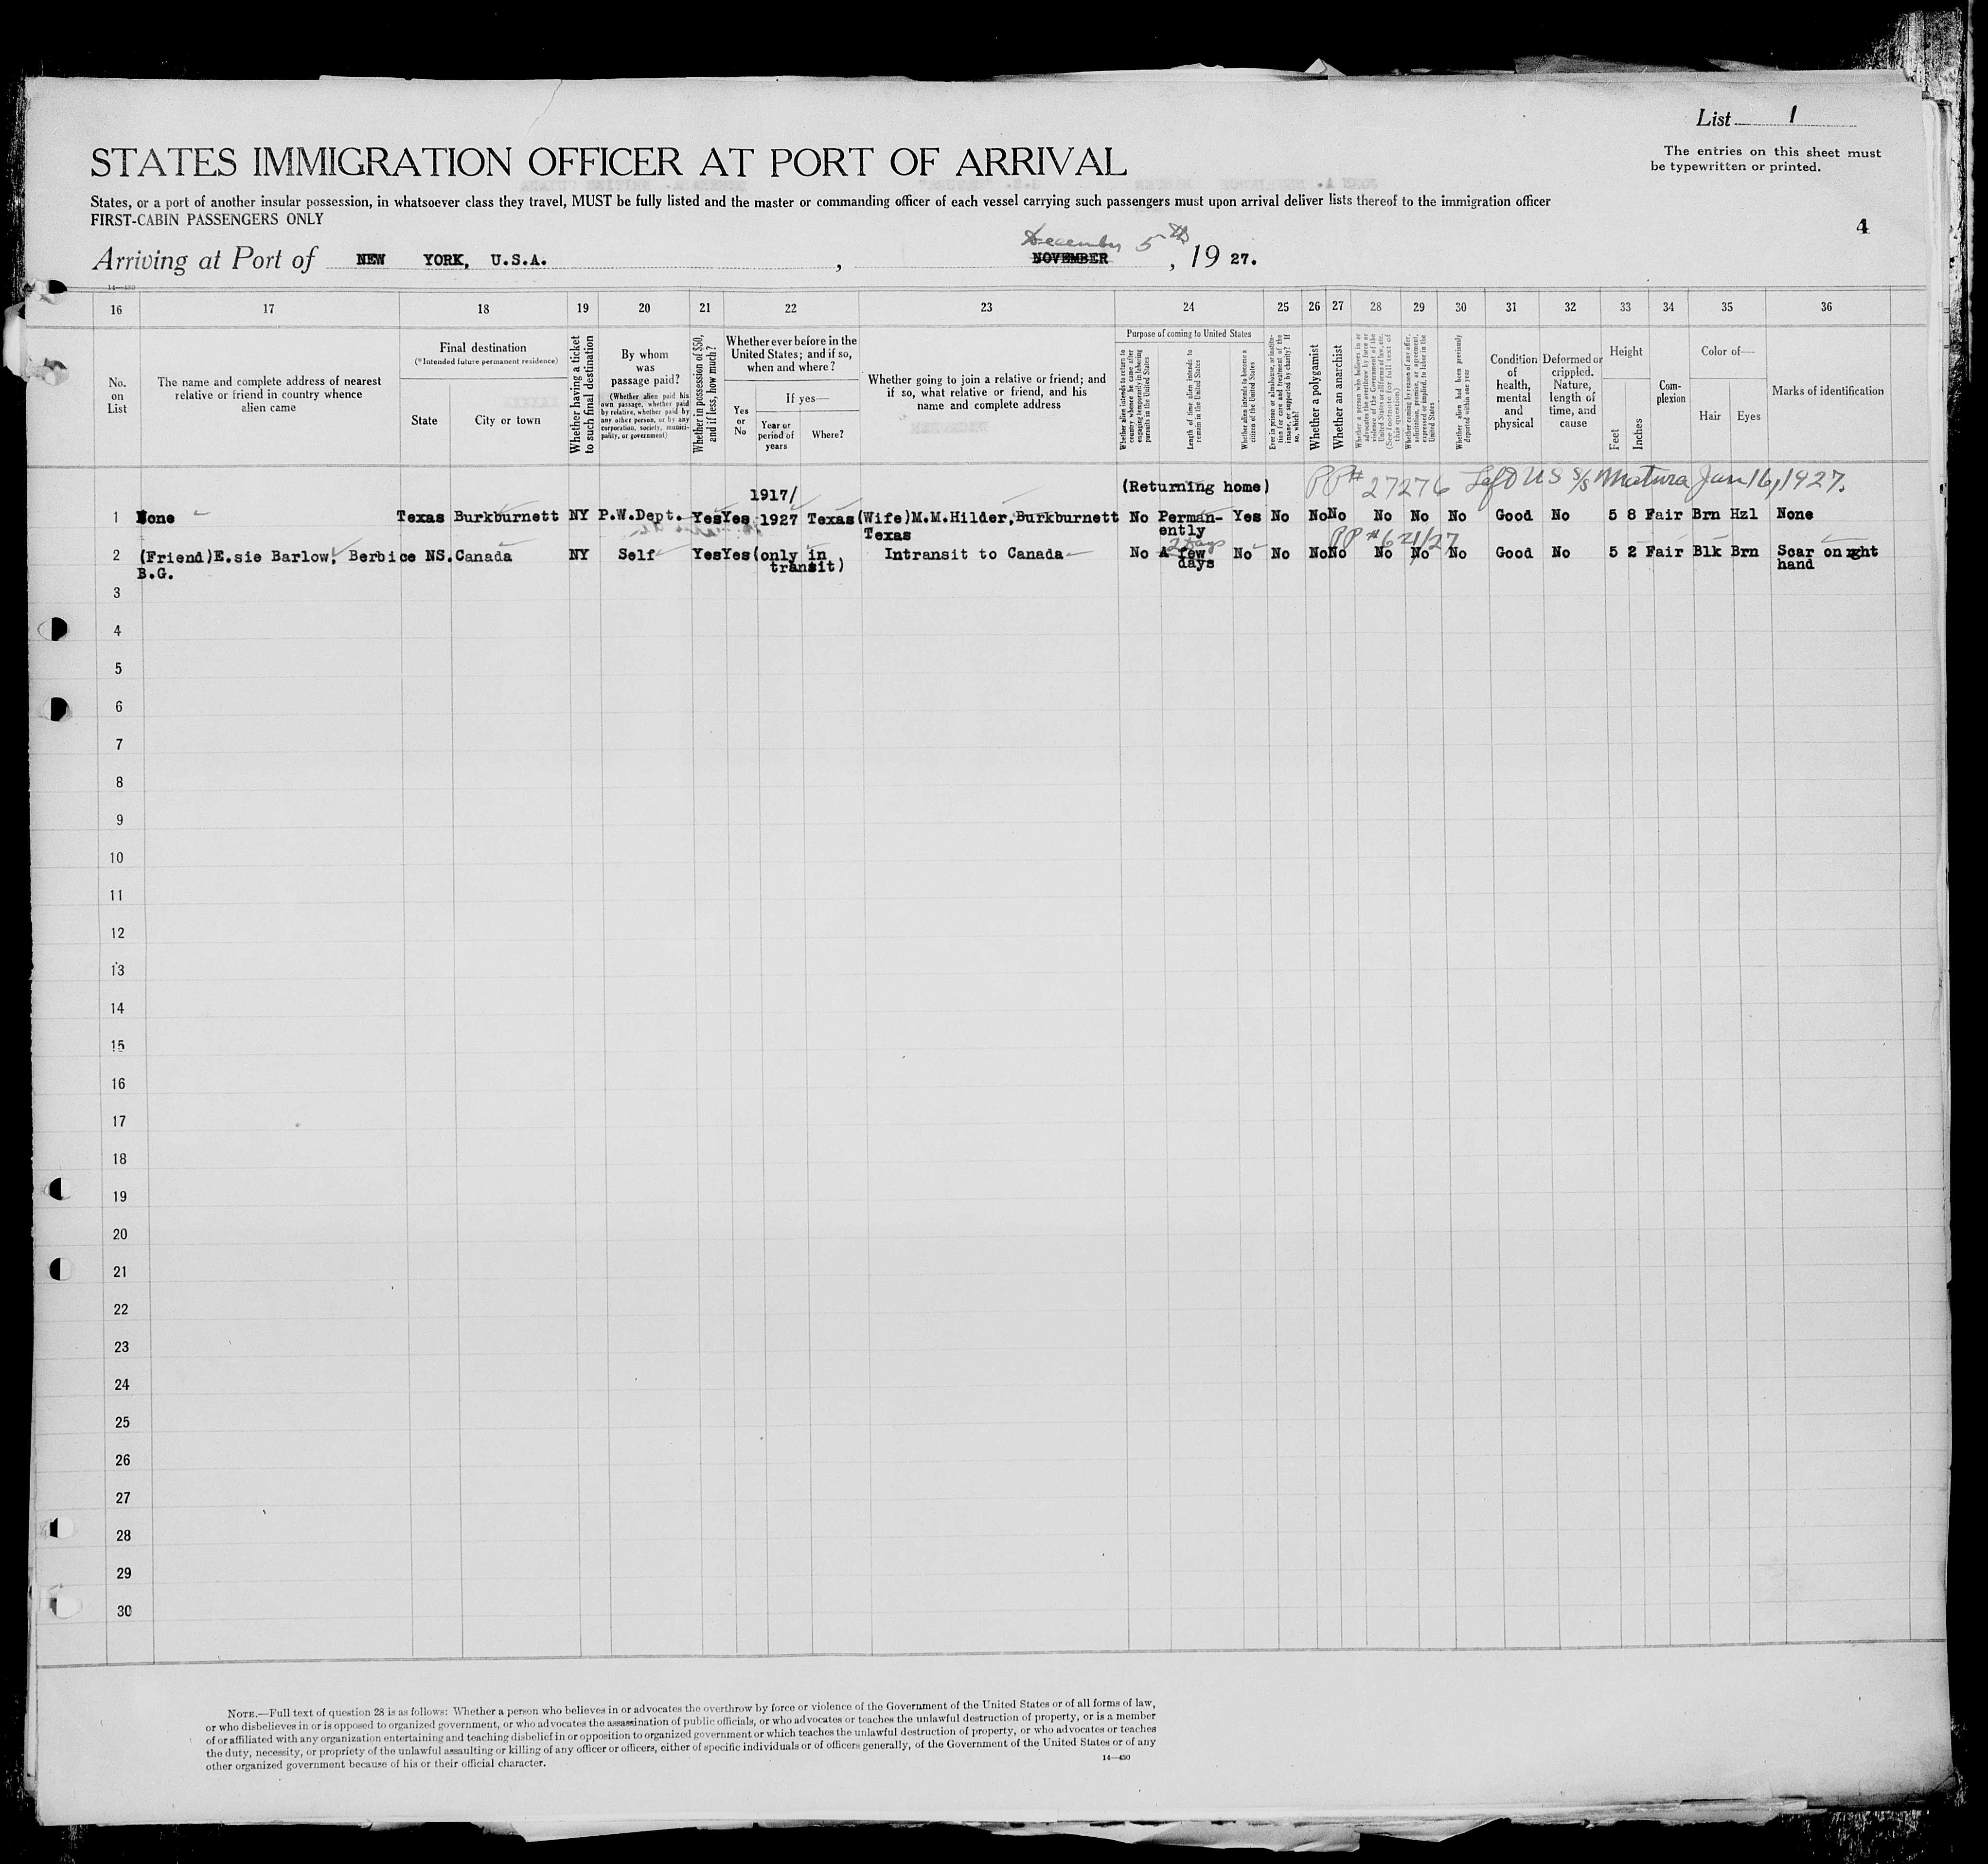 List 1
The entries on this sheet must
be typewritten or printed.
STATES IMMIGRATION OFFICER AT PORT OF ARRIVAL
States, or a port of another insular possession, in whatsoever class they travel, MUST be fully listed and the master or commanding officer of each vessel carrying such passengers must upon arrival deliver lists thereof to the immigration officer
FIRST-CABIN PASSENGERS ONLY
4
December 5th
Arriving at Port of NEW YORK, U.S.A. , NOVEMBER , 19 27.
14—430
16 17 18 19 20 21 22 23 24 25 26 27 28 29 30 31 32 33 34 35 36
No.
on
List
The name and complete address of nearest
relative or friend in country whence
alien came
Final destination
(*Intended future permanent residence)
State City or town
Whether having a ticket
to such final destination
By whom
was
passage paid?
(Whether alien paid his
own passage, whether paid
by relative, whether paid by
any other person, or by any
corporation, society, munici-
pality, or government)
Whether in possession of $50,
and if less, how much?
Whether ever before in the
United States; and if so,
when and where?
Yes
or
No
If yes—
Year or
period of
years
Where?
Whether going to join a relative or friend; and
if so, what relative or friend, and his
name and complete address
Purpose of coming to United States
Whether alien intends to return to
country whence he came after
engaging temporarily in laboring
pursuits in the United States
Length of time alien intends to
remain in the United States
Whether alien intends to become a
citizen of the United States
Ever in prison or almshouse, or institu-
tion for care and treatment of the
insane, or supported by charity? If
so, which?
Whether a polygamist
Whether an anarchist
Whether a person who believes in or
advocates the overthrow by force or
violence of the Government of the
United States or all forms of law, etc.
(See footnote for full text of
this question.)
Whether coming by reason of any offer,
solicitation, promise, or agreement,
expressed or implied, to labor in the
United States
Whether alien had been previously
deported within one year
Condition
of
health,
mental
and
physical
Deformed or
crippled.
Nature,
length of
time, and
cause
Height
Feet
Inches
Com-
plexion
Color of—
Hair Eyes
Marks of identification
1917/ (Returning home) PP# 27276 Left US S/S Matura Jan 16, 1927.
1 None Texas Burkburnett NY P.W.Dept. Yes Yes 1927 Texas (Wife)M.M.Hilder,Burkburnett No Perman- Yes No No No No No No Good No 5 8 Fair Brn Hzl None
Texas ently
2 days PP #621/27
2 (Friend)E.sie Barlow, Berbice NS. Canada NY Self Yes Yes (only in Intransit to Canada No A few No No No No No No No Good No 5 2 Fair Blk Brn Scar on right
B.G. transit) days hand
3
4
5
6
7
8
9
10
11
12
13
14
15
16
17
18
19
20
21
22
23
24
25
26
27
28
29
30
NOTE.—Full text of question 28 is as follows: Whether a person who believes in or advocates the overthrow by force or violence of the Government of the United States or of all forms of law,
or who disbelieves in or is opposed to organized government, or who advocates the assassination of public officials, or who advocates or teaches the unlawful destruction of property, or is a member
of or affiliated with any organization entertaining and teaching disbelief in or opposition to organized government or which teaches the unlawful destruction of property, or who advocates or teaches
the duty, necessity, or propriety of the unlawful assaulting or killing of any officer or officers, either of specific individuals or of officers generally, of the Government of the United States or of any
other organized government because of his or their official character.
14—430